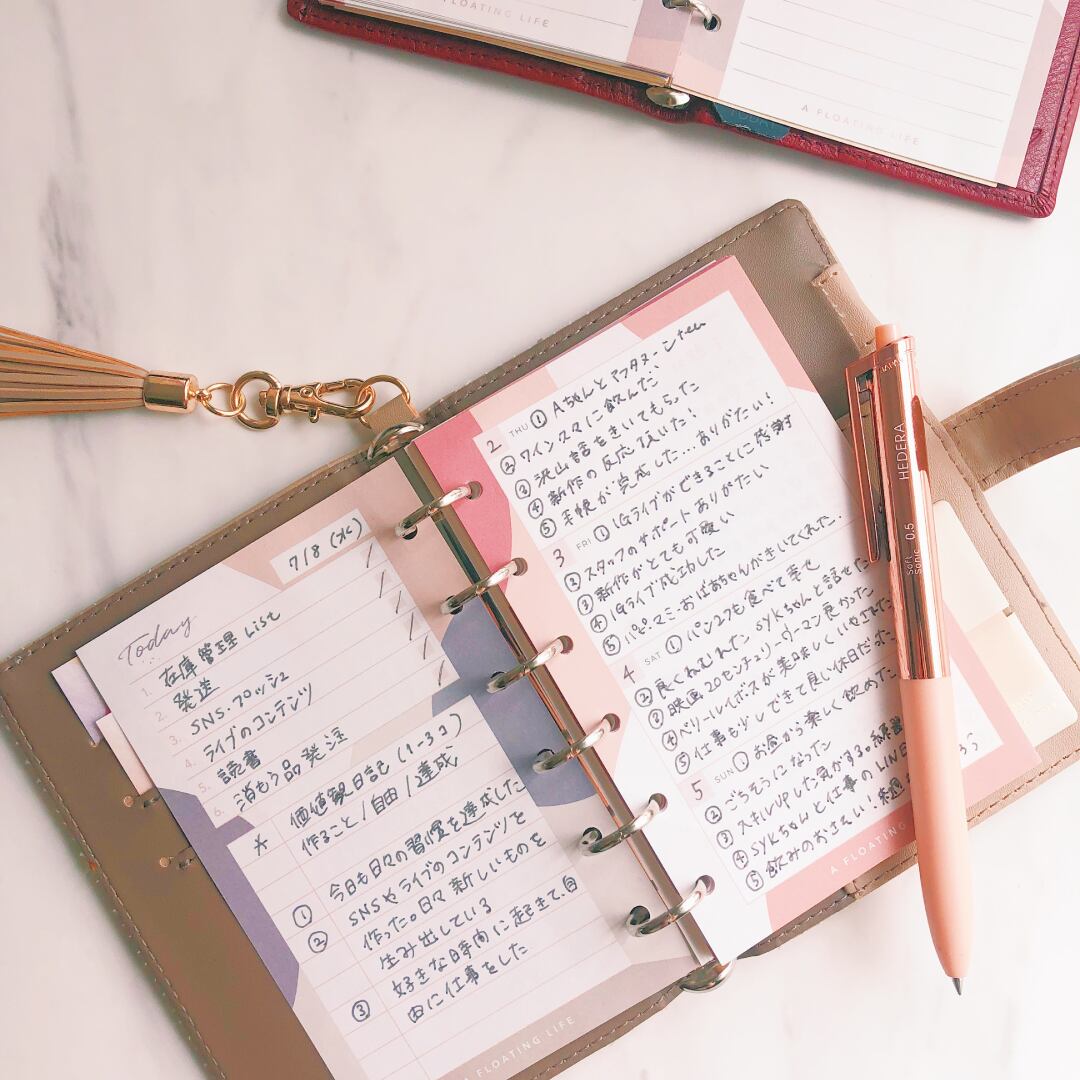 A FLOATING LIFE
A FLOATING LIFE
TODAY
7/8 (水)
Today
1. 在庫管理 List
2. 発送
3. SNS・プロッジェ
4. ライブのコンテンツ
5. 読書
6. 消もう品発注
* 価値観日記 (1~3コ)
作ること/自由/達成
① 今日も日々の習慣を達成した
② SNSやライブのコンテンツを
作った。日々新しいものを
生み出している
③ 好きな時間に起きて、自
由に仕事をした
A FLOATING LIFE
2 THU ① Aちゃんとアフタヌーンtea
② ワインスタに飲んだ!
③ 沢山話をきいてもらった
④ 新作の反応良いた!
⑤ 手帳が完成した...ありがたい!
3 FRI ① IGライブができることに感謝
② スタッフのサポートありがたい
③ 新作がとても可愛い
④ IGライブ成功した
⑤ パピー・マミー・おばあちゃんがきいてくれた.
4 SAT ① パン2つも食べて幸せ
② 良くねむれたし SYKちゃんと話せた
③ 映画20センチュリーウーマン良かった
④ ペリールイボスが美味しくいやされた
⑤ 仕事も少しできて良い休日だった
5 SUN ① お昼から楽しく飲めた
② ごちそうになった
③ スキルUPした気がする
④ SYKちゃんと仕事のLINE
⑤ 飲みのおさそい!来週
A FLOATING
HEDERA
Soft
Sonic 0.5